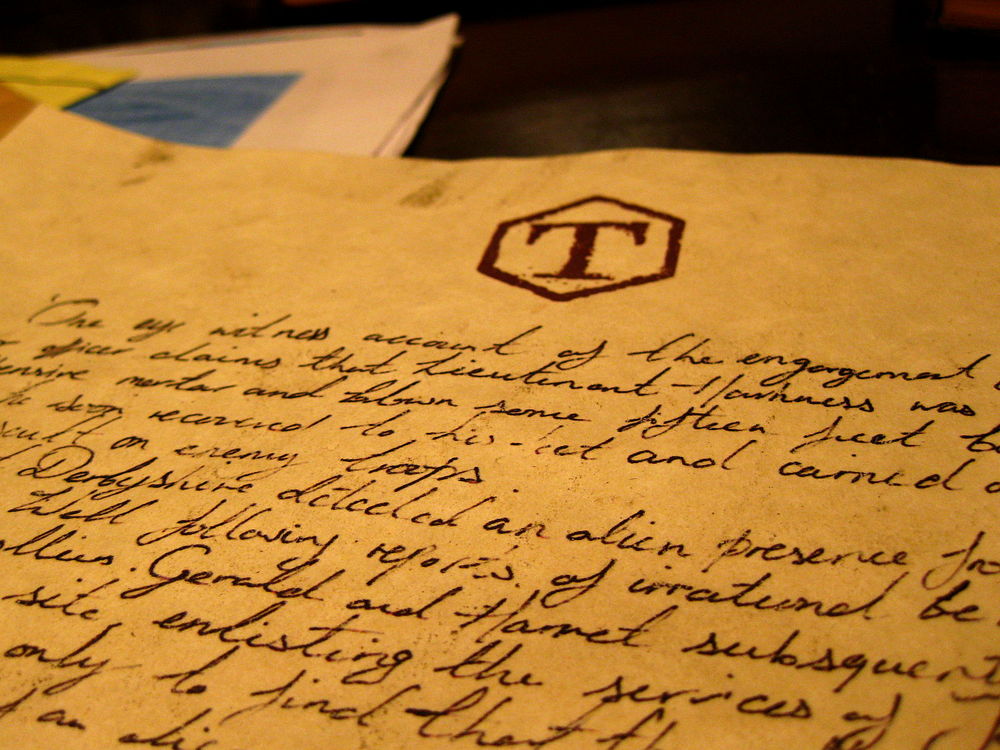 T
One eye witness account of the engagement
officer claims that Lieutenant Harkness was
mortar and blown some fifteen feet
soon recovered to his feet and carried
on enemy troops.
Derbyshire detected an alien presence
Well following reports of irrational be
Gerald and Harriet subsequent
site enlisting the services of
only to find that
an